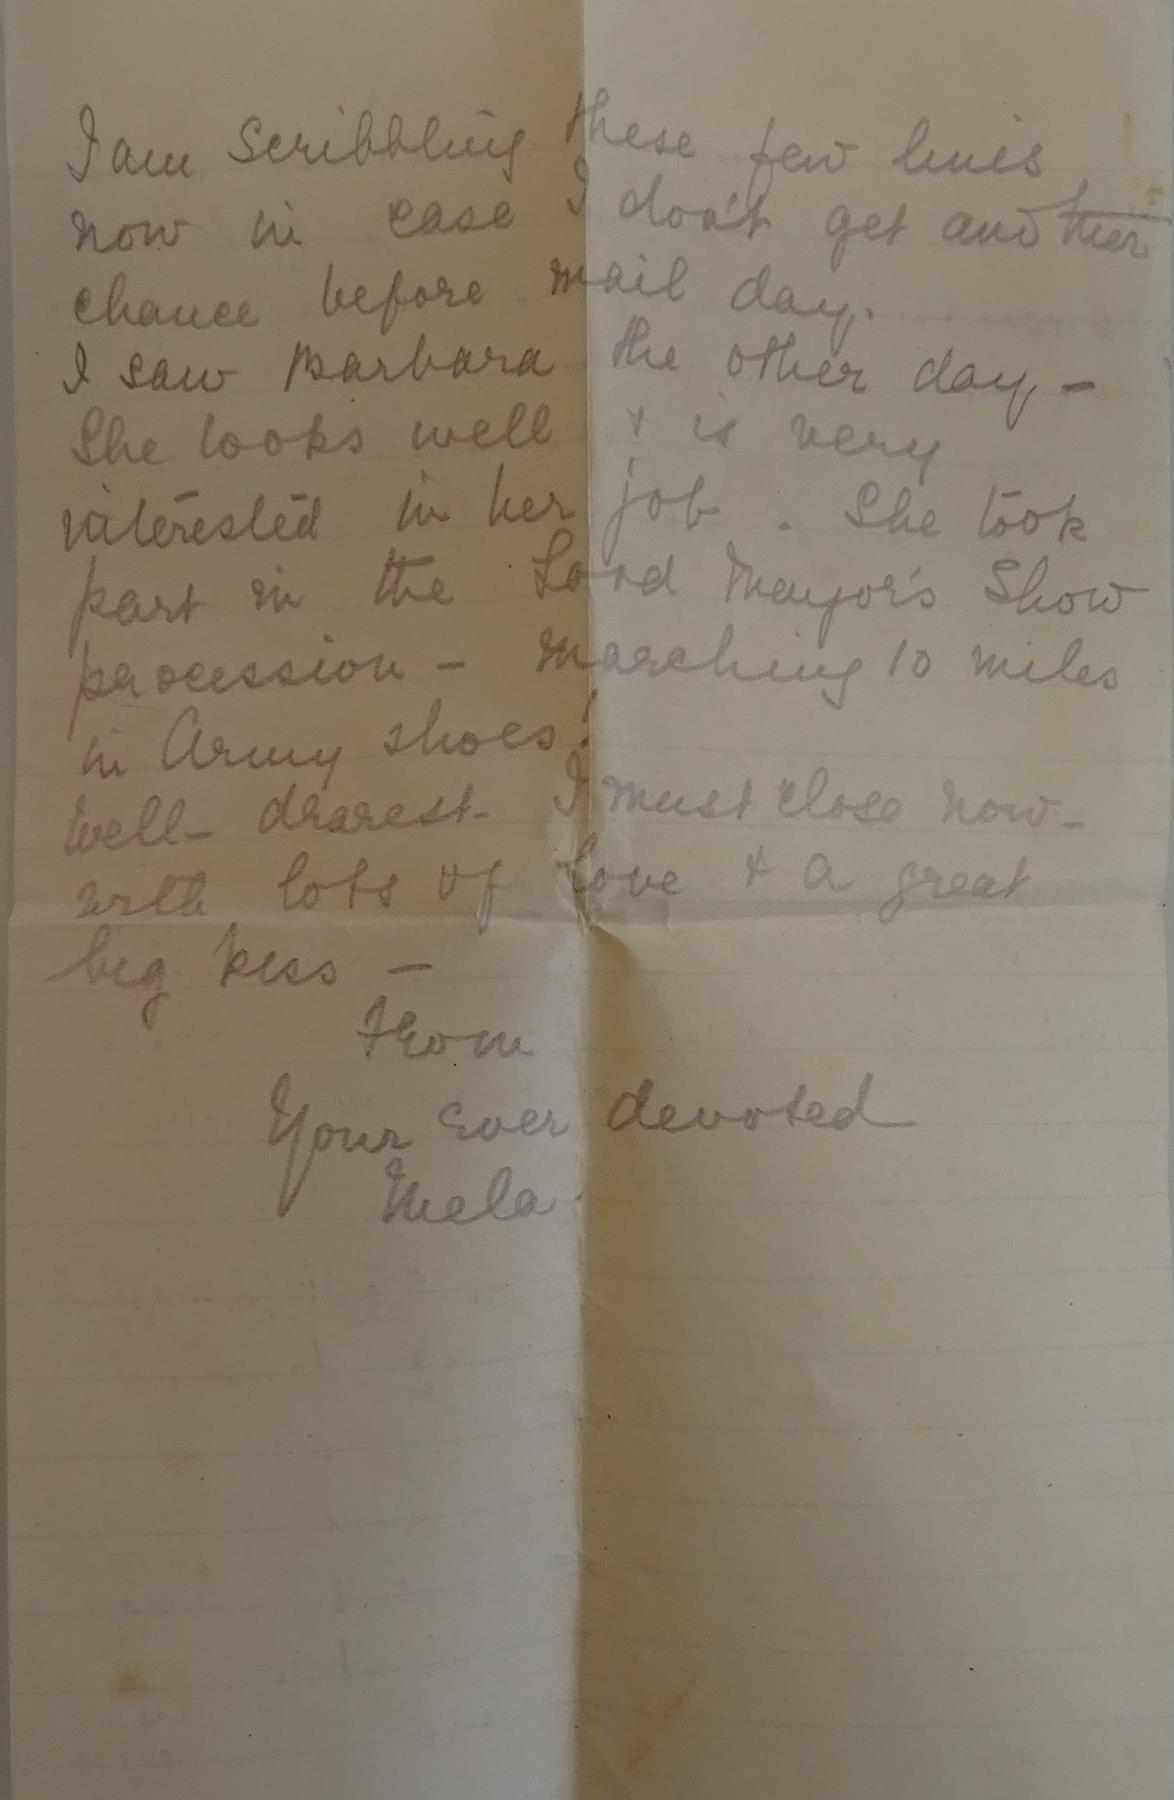 I am Scribbling these few lines
now in case I don't get another
chance before mail day.
I saw Barbara the other day -
She looks well + is very
interested in her job. She took
part in the Lord Mayor's Show
procession - marching 10 miles
in Army shoes!
Well - dearest - I must close now -
with lots of love + a great
big kiss -
From
Your Ever devoted
Mela.